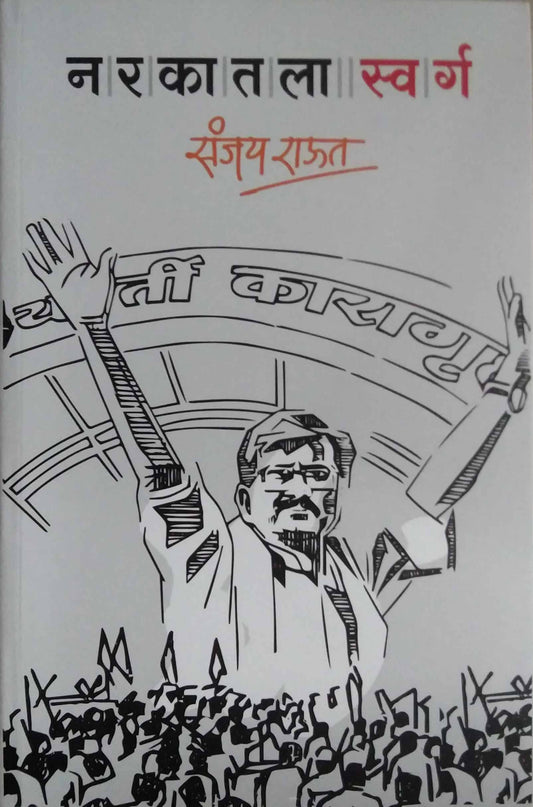 नरकातला स्वर्ग
संजय राऊत
र्ती कारागृह